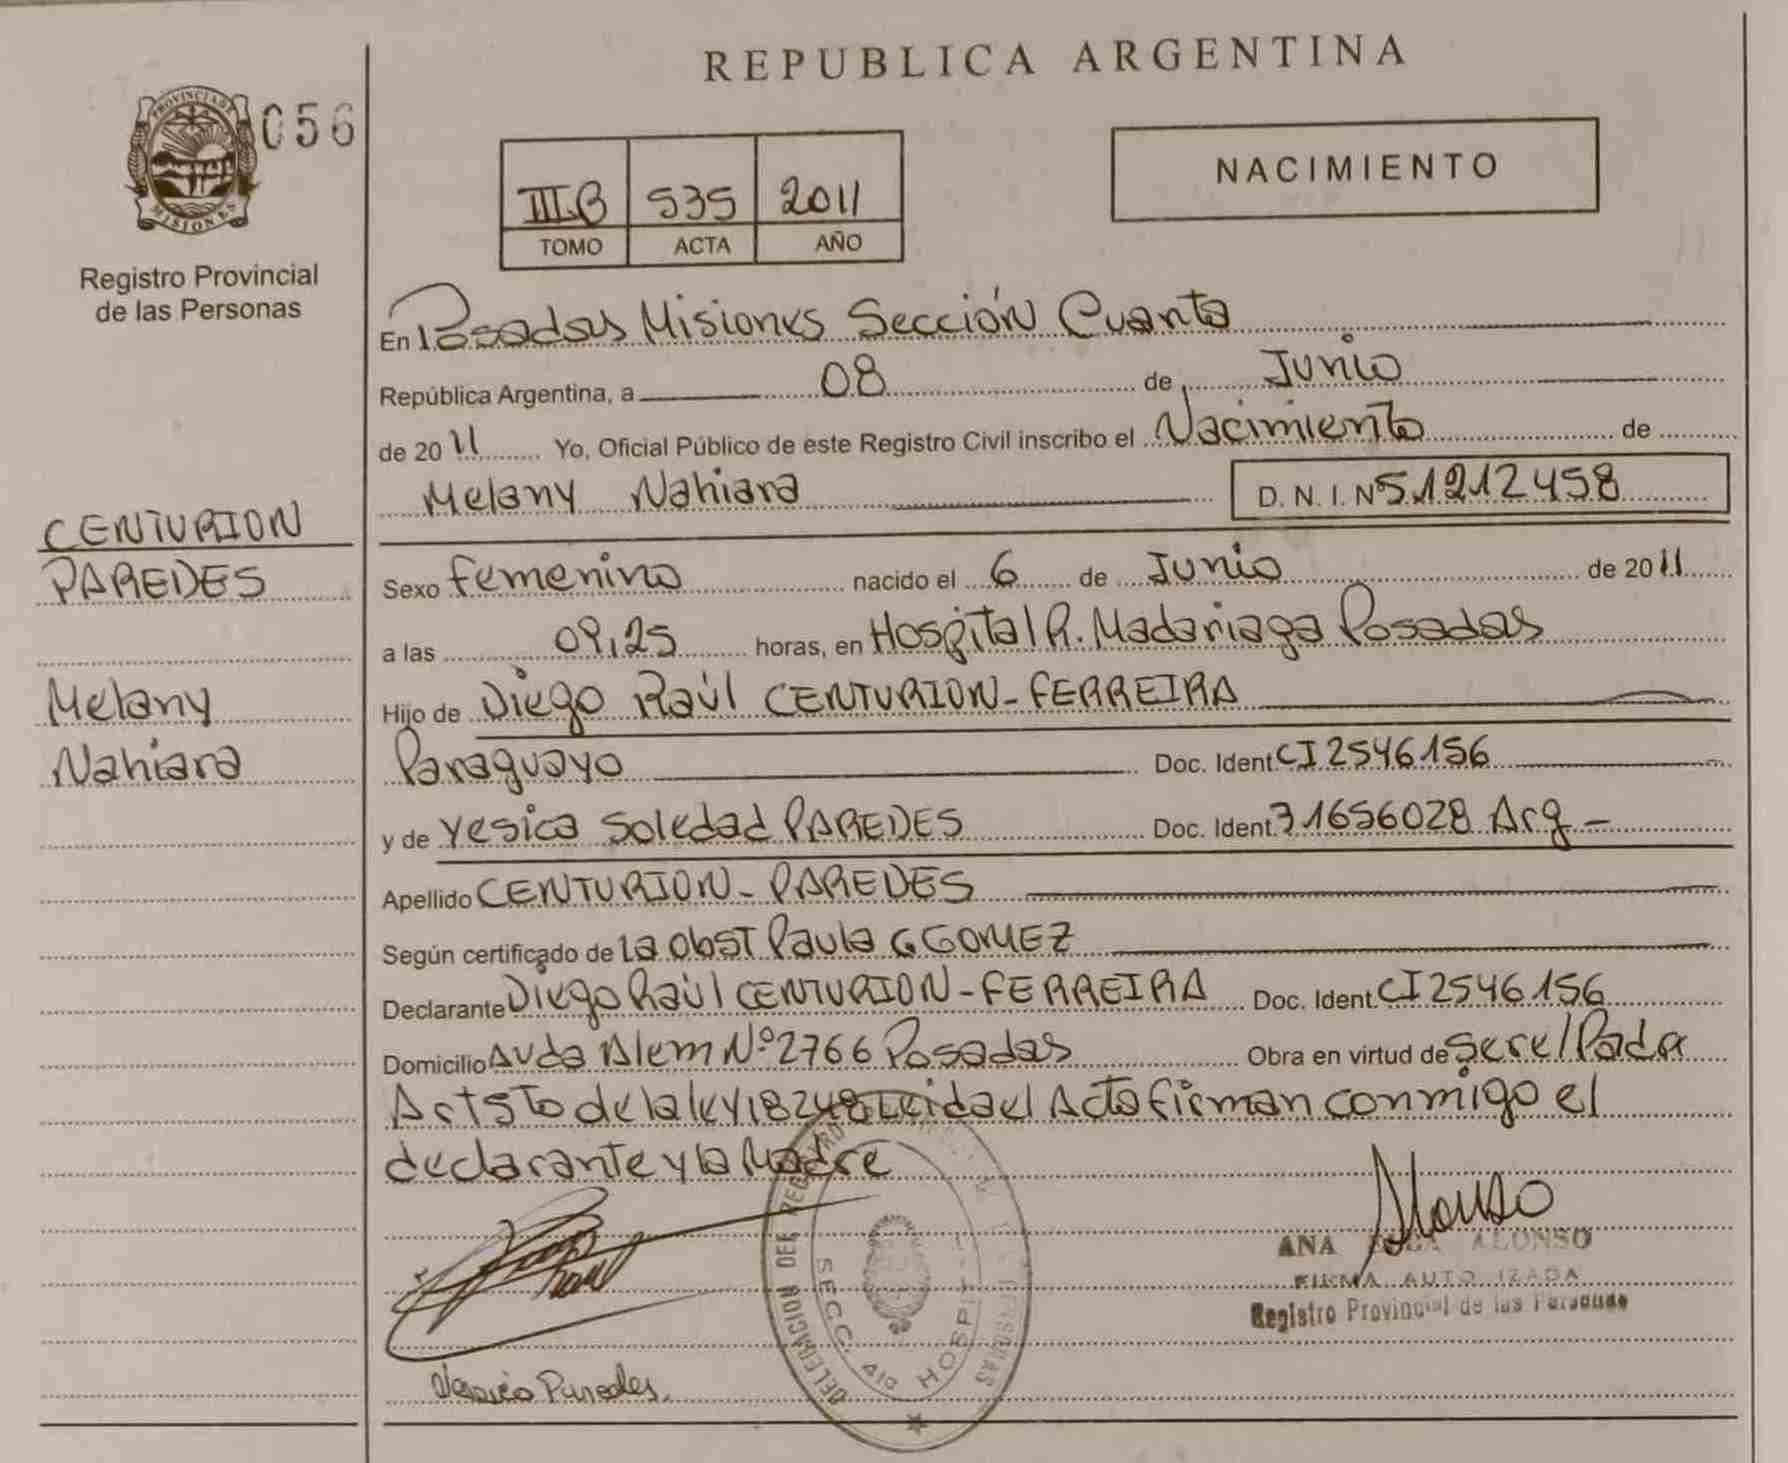 REPUBLICA ARGENTINA
PROVINCIA DE
MISIONES
056
Registro Provincial
de las Personas
III B 535 2011
TOMO ACTA AÑO
NACIMIENTO
En Posadas Misiones Sección Cuarta
República Argentina, a 08 de Junio
de 2011 Yo, Oficial Público de este Registro Civil inscribo el Nacimiento de
Melany Nahiara D.N.I. Nº 51212458
CENTURION
PAREDES
Melany
Nahiara
Sexo femenino nacido el 6 de Junio de 2011
a las 09,25 horas, en Hospital R. Madariaga Posadas
Hijo de Diego Raúl CENTURION-FERREIRA
Paraguayo Doc. Ident. CI 2546156
y de Yesica Soledad PAREDES Doc. Ident. 31656028 Arg -
Apellido CENTURION - PAREDES
Según certificado de la Obst Paula G GOMEZ
Declarante Diego Raúl CENTURION-FERREIRA Doc. Ident. CI 2546156
Domicilio Avda Alem Nº 2766 Posadas Obra en virtud de Ser el Padre
Art 5to de la ley 18248 Leida el Acta firman conmigo el
declarante y la Madre
Alonso
ANA ALONSO
FIRMA AUTORIZADA
Registro Provincial de las Personas
DELEGACION DEL REGISTRO PERSONAS
SECC. 4ta HOSPITAL
Yesica Paredes